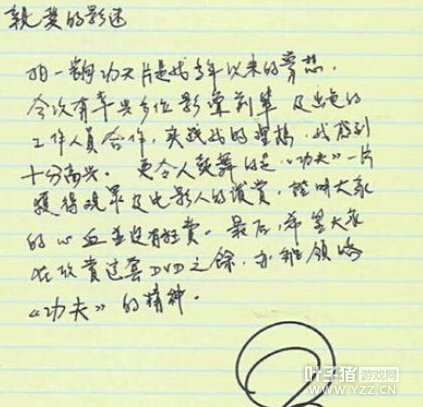 親愛的影迷
拍一齣功夫片是我多年以來的夢想.
今次有幸與多位影壇前輩及出色的
工作人員合作, 實踐我的理想, 我感到
十分高興. 更令人鼓舞的是“功夫”一片
獲得觀眾及電影人的讚賞, 證明大家
的心血並沒有枉費. 最后, 希望大家
在欣賞這套DVD之餘, 亦能領略
“功夫”的精神.
叶子猪 游戏网
WWW.YZZ.CN